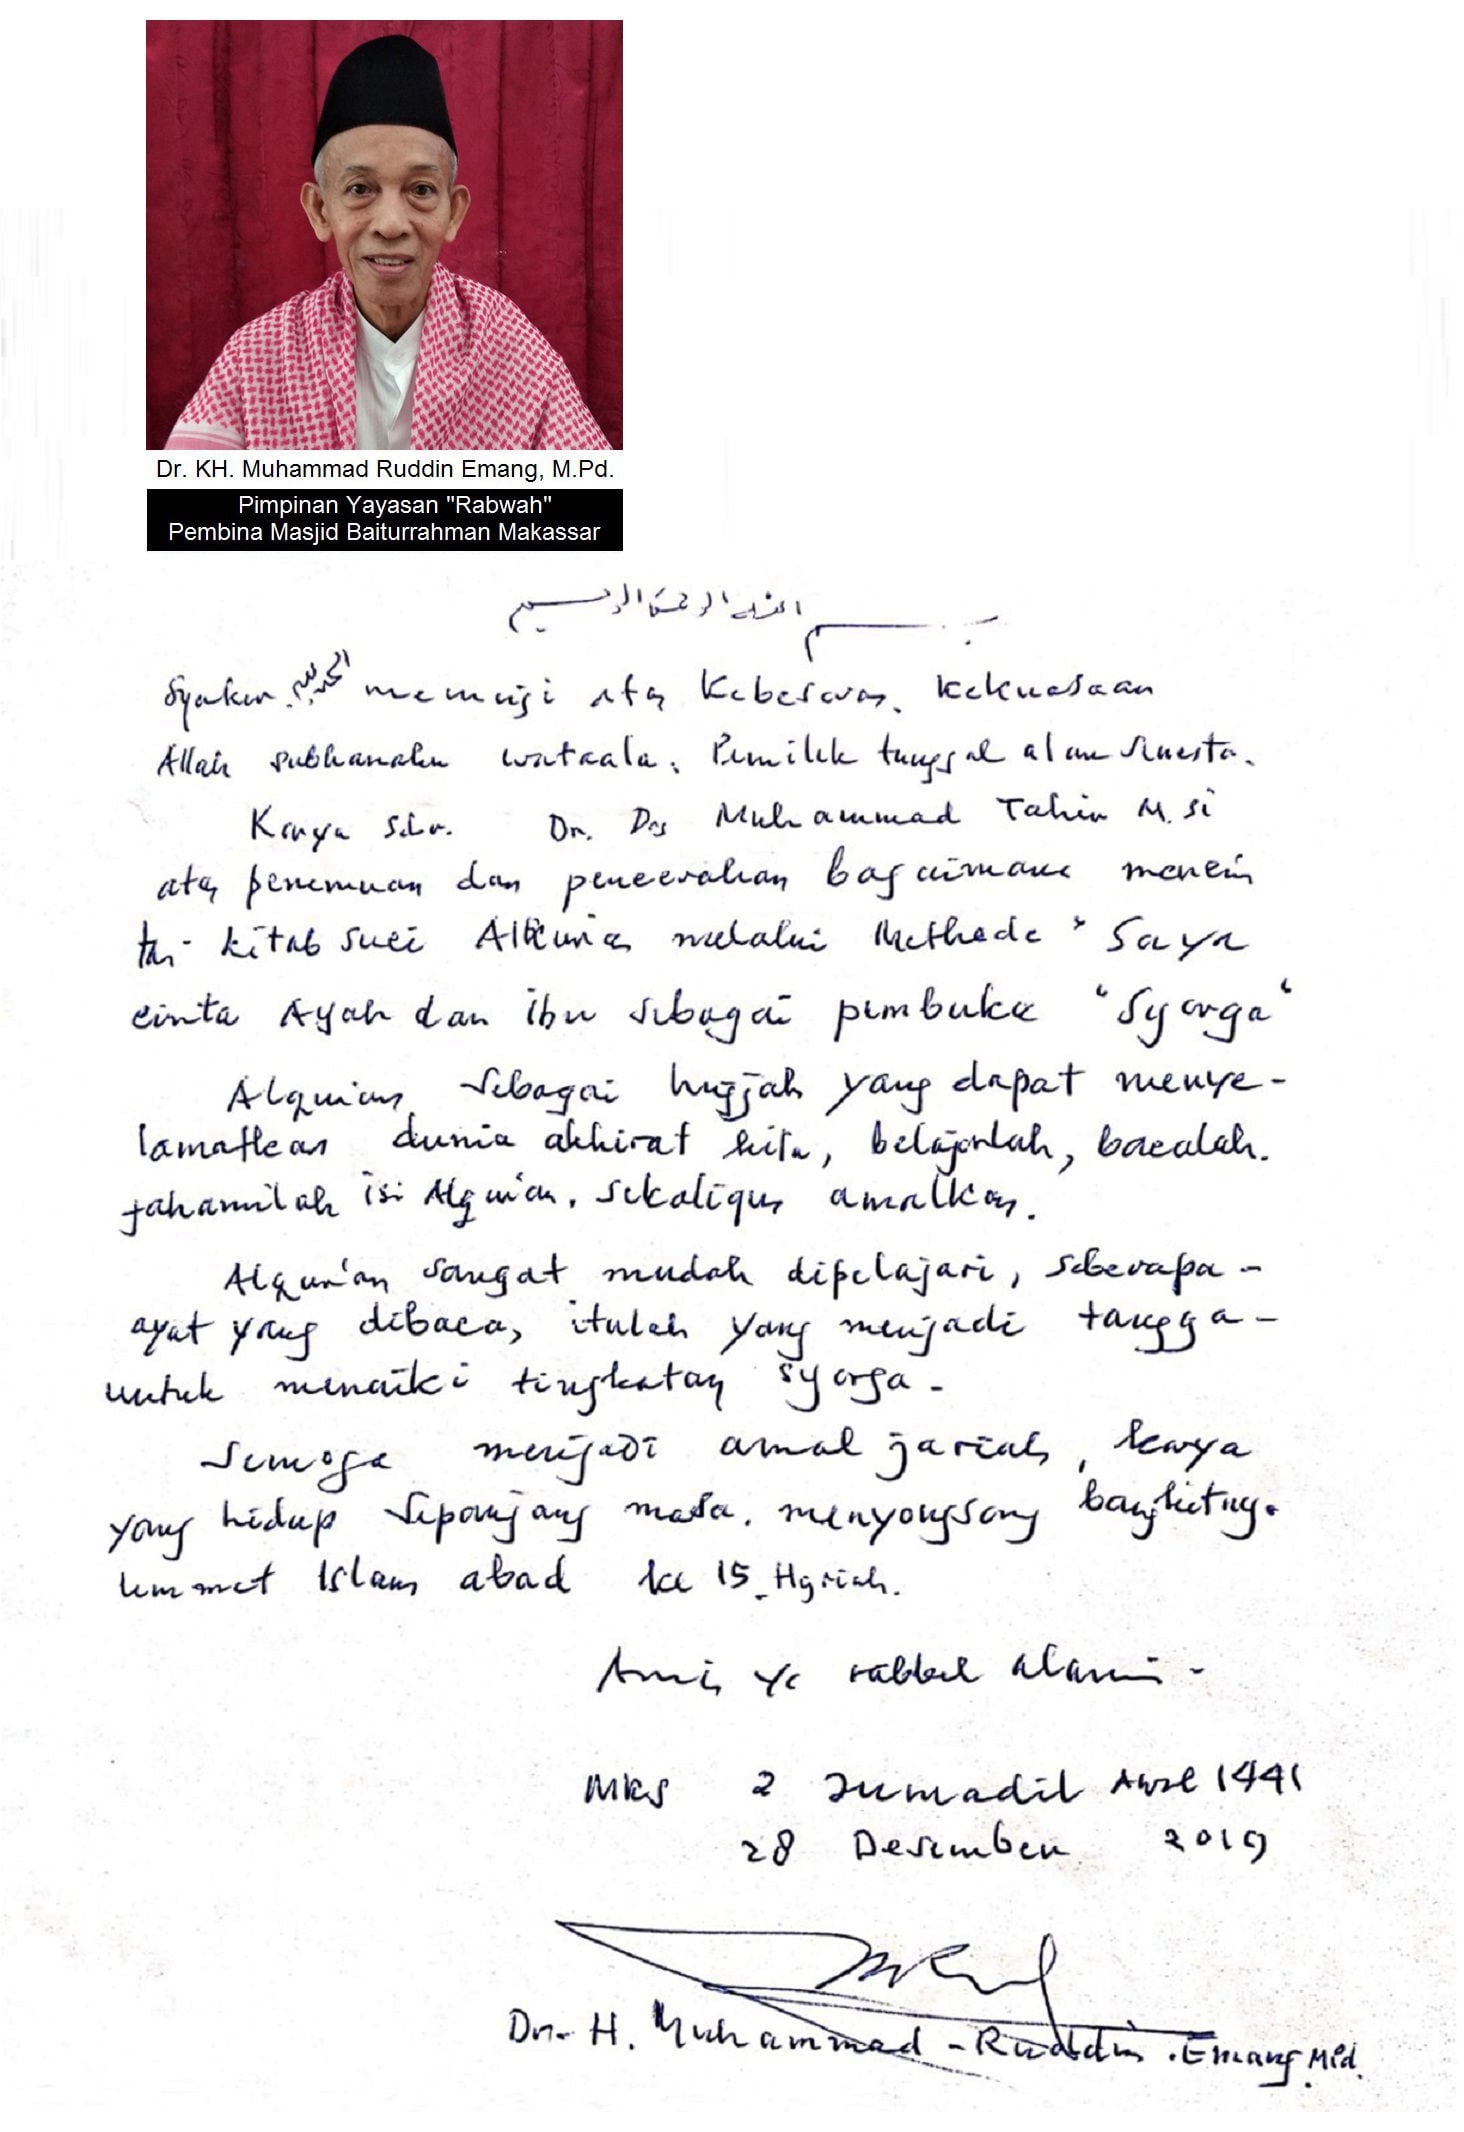 Dr. KH. Muhammad Ruddin Emang, M.Pd.
Pimpinan Yayasan "Rabwah"
Pembina Masjid Baiturrahman Makassar
بسم الله الرحمن الرحيم
Syukur الحمد لله memuji atas Kebesaran, kekuasaan
Allah subhanahu wataala, Pemilik tunggal alam semesta.
Karya Sdr. Dr. Drs Muhammad Tahir M.si
atas penemuan dan pencerahan bagaimana mencin
tai kitab suci AlQur'an melalui Methode "Saya
cinta Ayah dan ibu sebagai pembuka "Syorga"
Alqur'an sebagai hujjah yang dapat menye-
lamatkan dunia akhirat kita, belajarlah, bacalah.
fahamilah isi Alqur'an, sekaligus amalkan.
Alqur'an sangat mudah dipelajari, seberapa-
ayat yang dibaca, itulah yang menjadi tangga-
untuk menaiki tingkatan syorga-
Semoga menjadi amal jariah, karya
yang hidup sepanjang masa, menyongsong bangkitny.
ummat Islam abad ke 15 Hijriah.
Amin ya rabbal alamin-
Mks 2 Jumadil Awal 1441
28 Desember 2019
Dr. H. Muhammad-Ruddin.Emang Mpd.